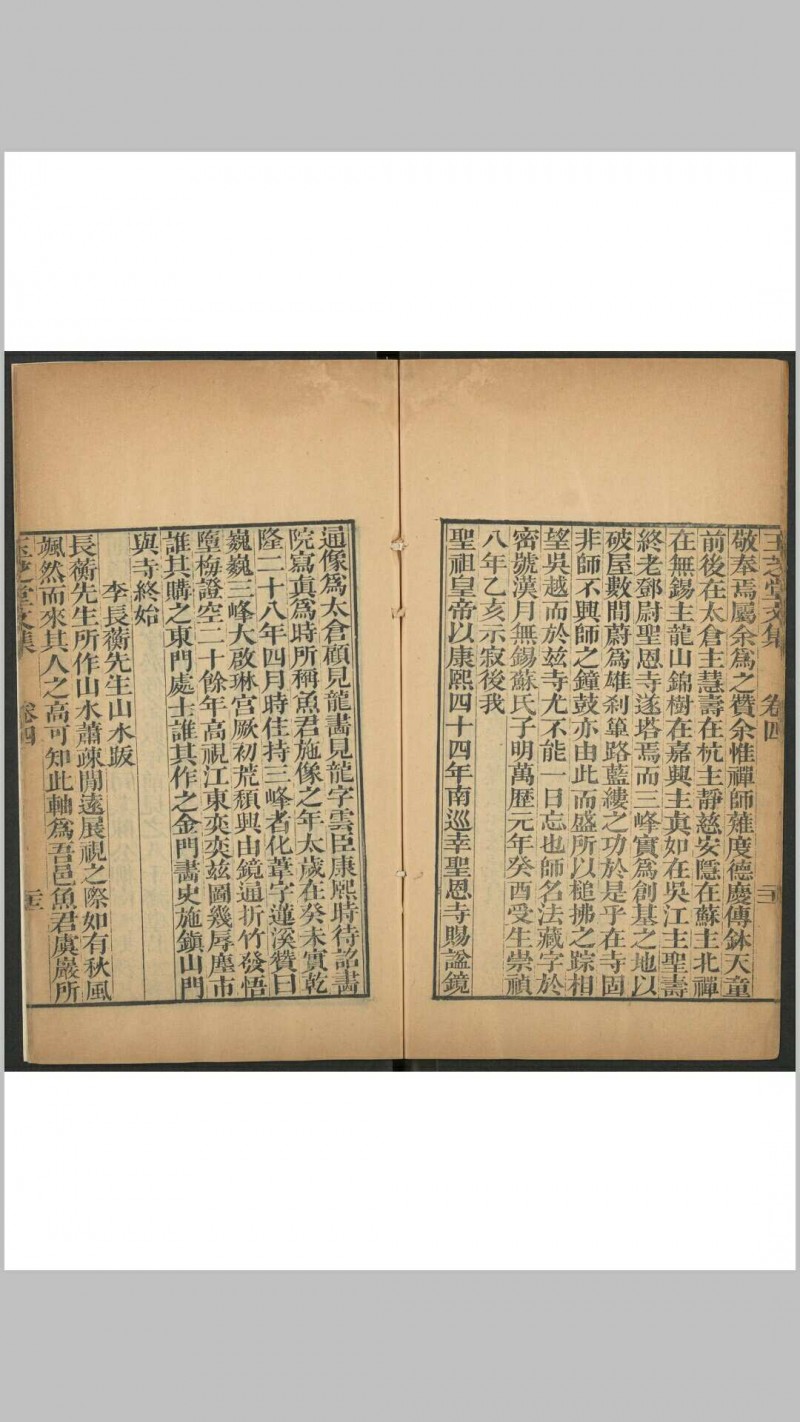 玉芝堂文集 卷四
敬奉焉屬余爲之贊余惟禪師薙度德慶傳鉢天童
前後在太倉主慧壽在杭主靜慈安隱在蘇主北禪
在無錫主龍山錦樹在嘉興主真如在吳江主聖壽
終老鄧尉聖恩寺遂塔焉而三峰實爲創基之地以
破屋數間蔚爲雄刹篳路藍縷之功於是乎在寺固
非師不興師之鐘鼓亦由此而盛所以槌拂之踪相
望吳越而於兹寺尤不能一日忘也師名法藏字於
密號漢月無錫蘇氏子明萬歷元年癸酉受生崇禎
八年乙亥示寂後我
聖祖皇帝以康熙四十四年南巡幸聖恩寺賜謚鏡
通像爲太倉顧見龍畵見龍字雲臣康熙時待詔畵
院寫真爲時所稱魚君施像之年太歲在癸未實乾
隆二十八年四月時住持三峰者化葦字蓮溪贊曰
巍巍三峰大啟琳宫厥初荒頹興由鏡通折竹發悟
墮梅證空二十餘年高視江東奕奕兹圖幾辱塵市
誰其購之東門處士誰其作之金門畵史施鎮山門
與寺終始
李長蘅先生山水䟦
長蘅先生所作山水蕭疎閒遠展視之際如有秋風
颯然而來其人之高可知此軸爲吾邑魚君虞巖所
玉芝堂文集 卷四